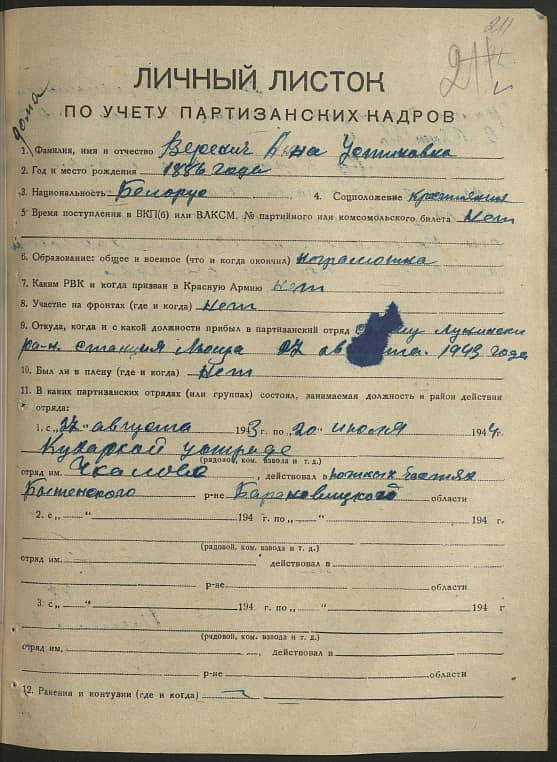 211
211
дома
ЛИЧНЫЙ ЛИСТОК
ПО УЧЕТУ ПАРТИЗАНСКИХ КАДРОВ
1. Фамилия, имя и отчество Веренич Анна Устиновна
2. Год и место рождения 1886 года
3. Национальность Белорус 4. Соцположение крестянин
5. Время поступления в ВКП(б) или ВЛКСМ, № партийного или комсомольского билета Нет
6. Образование: общее и военное (что и когда окончил) неграмотна
7. Каким РВК и когда призван в Красную Армию нет
8. Участие на фронтах (где и когда) Нет
9. Откуда, когда и с какой должности прибыл в партизанский отряд Лунински
ра-н. станция 27 августа. 1943 года
10. Был ли в плену (где и когда) Нет
11. В каких партизанских отрядах (или группах) состоял, занимаемая должность и район действия
отряда:
1. с „27" августа 1943 г. по „20" июля 1944 г.
Кухаркой
(рядовой, ком. взвода и т. д.)
отряд им. Чкалова, действовал в
Бытенского р-не Барановицкого области
2. с „ " 194 г. по „ " 194 г.
(рядовой, ком. взвода и т. д.)
отряд им. действовал в
р-не области
3. с „ " 194 г. по „ " 194 г
(рядовой, ком. взвода и т. д.)
отряд им. , действовал в
р-не области
12. Ранения и контузии (где и когда)